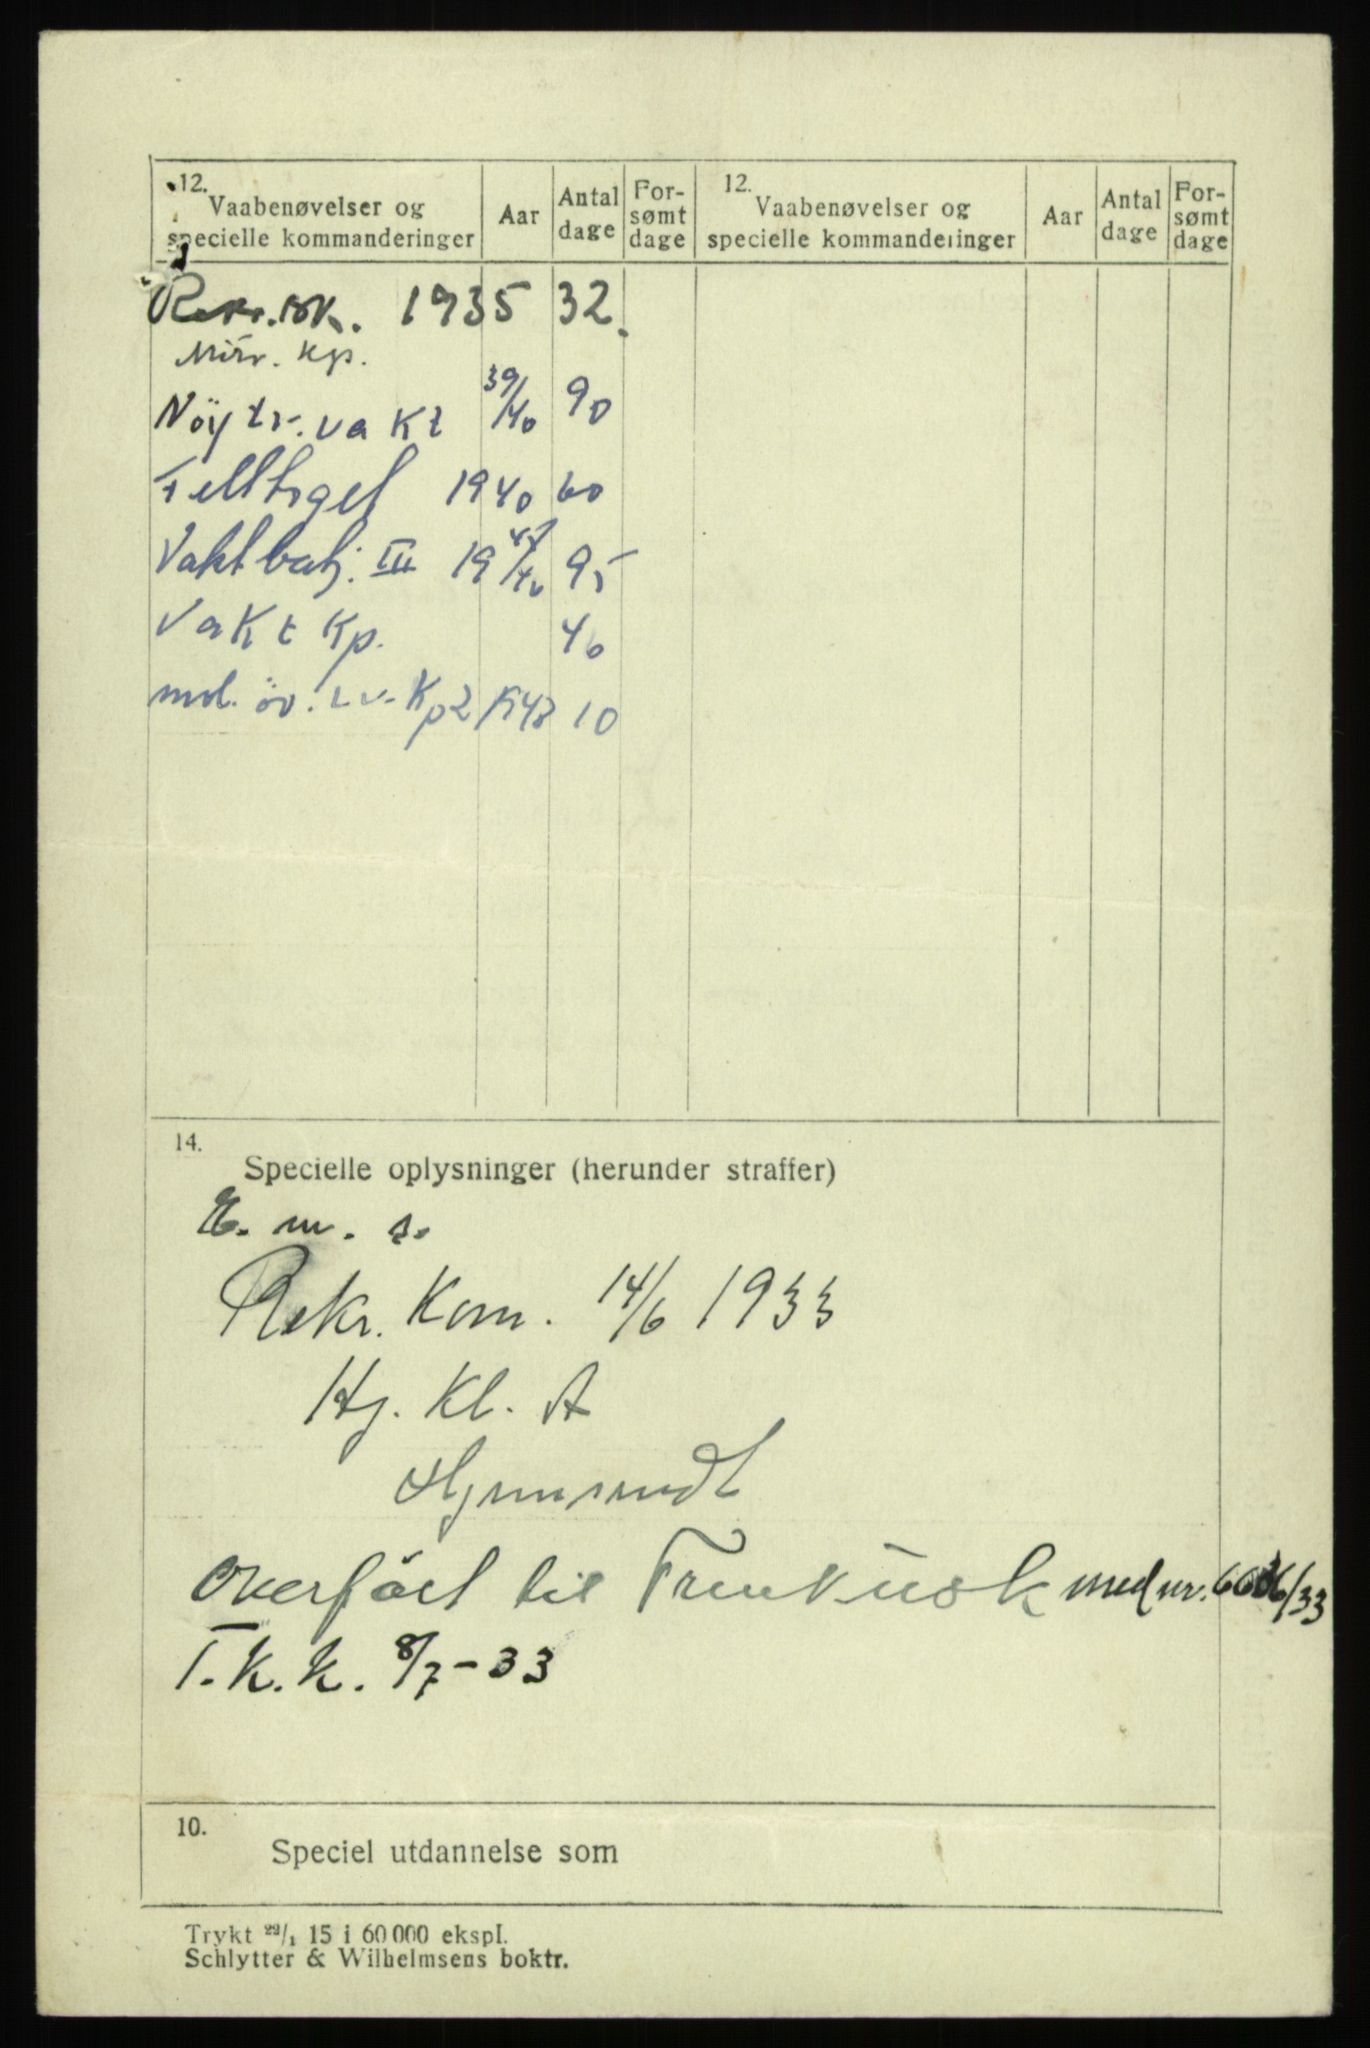 12. Vaabenøvelser og specielle kommanderinger | Aar | Antal dage | Forsømt dage | 12. Vaabenøvelser og specielle kommanderinger | Aar | Antal dage | Forsømt dage
Rekr.sk. 1935 32.
Min. Kp.
Nöytr. vakt 39/40 90
Felttoget 1940 60
Vaktbatj. III 19 /46 95
Vakt Kp. 46
md. öv. Lv. Kp 2 1948 10
14.
Specielle oplysninger (herunder straffer)
E. m. s.
Rekr. Kom. 14/6 1933
Hj. Kl. A
overfört til Trenkusk med nr. /33
T.K.K. 8/7-33
10.
Speciel utdannelse som
Trykt 22/1 15 i 60 000 ekspl.
Schlytter & Wilhelmsens boktr.